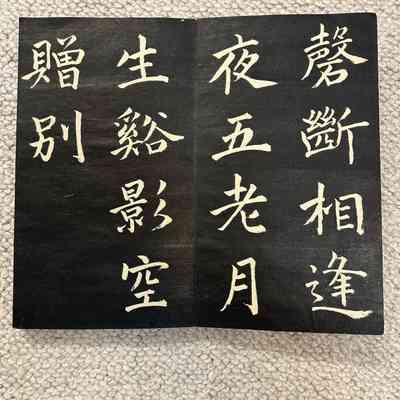 磬斷相逢
夜五老月
生谿影空
贈別